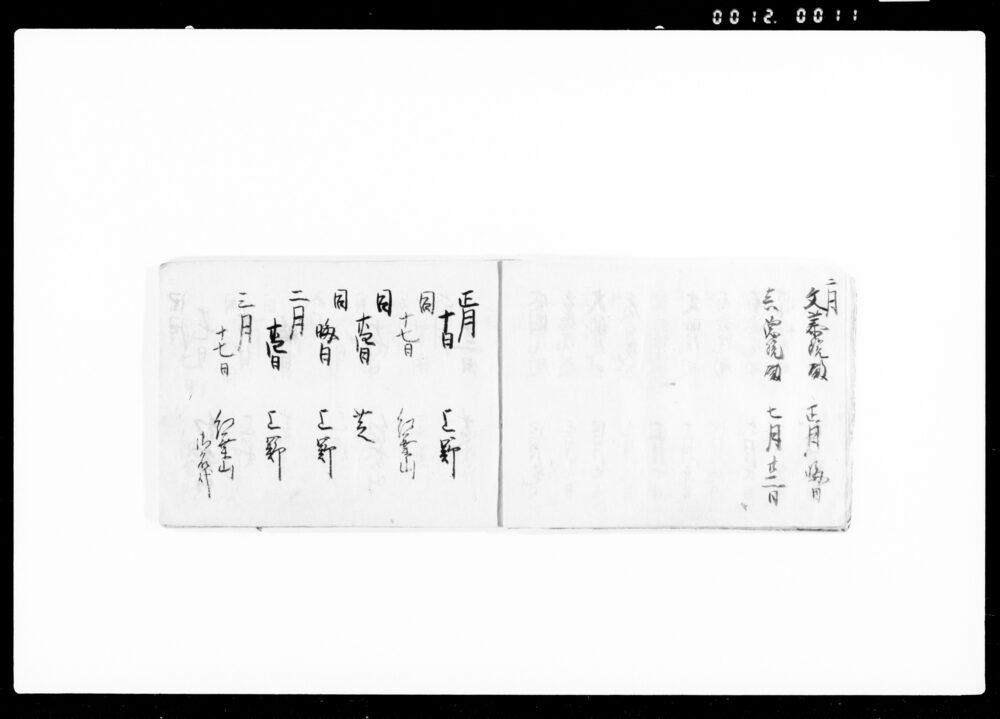 0012. 0011
二月
文恭院殿 正月晦日
七月廿二日
正月十日 上野
同十七日 紅葉山
同廿四日 芝
同晦日 上野
二月廿四日 上野
三月十七日 紅葉山